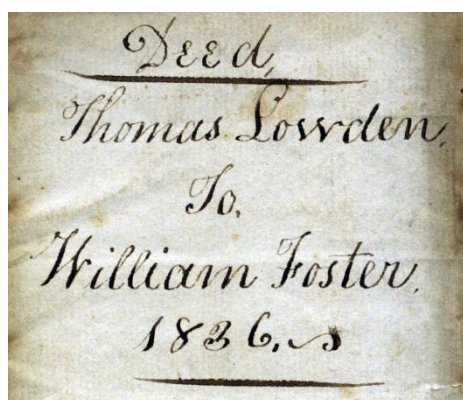 Deed,
Thomas Lowden.
To.
William Foster.
1836.